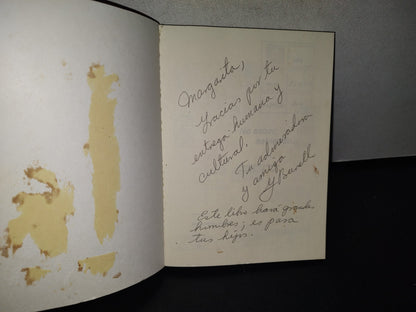 Margarita,
Gracias por tu
entrega humana y
cultural.
Tu admiradora
y amiga
Y Burell
Este libro hará grandes
hombres; es para
tus hijos.